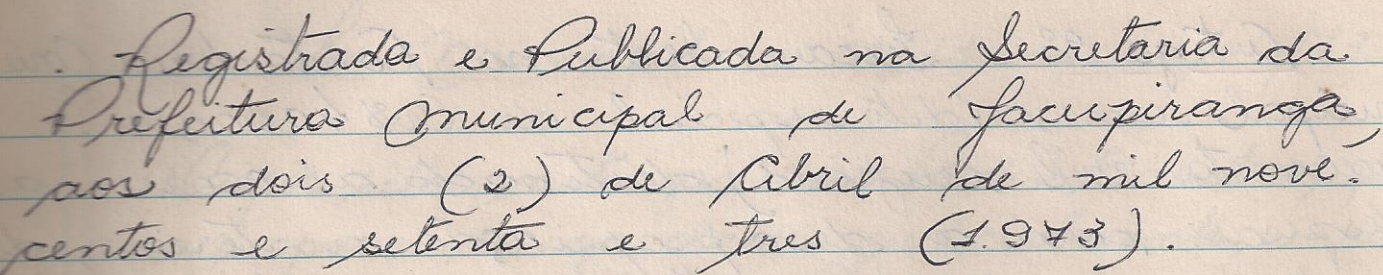 . Registrada e Publicada na Secretaria da
Prefeitura Municipal de Jacupiranga,
aos dois (2) de Abril de mil nove.
centos e setenta e tres (1.973).